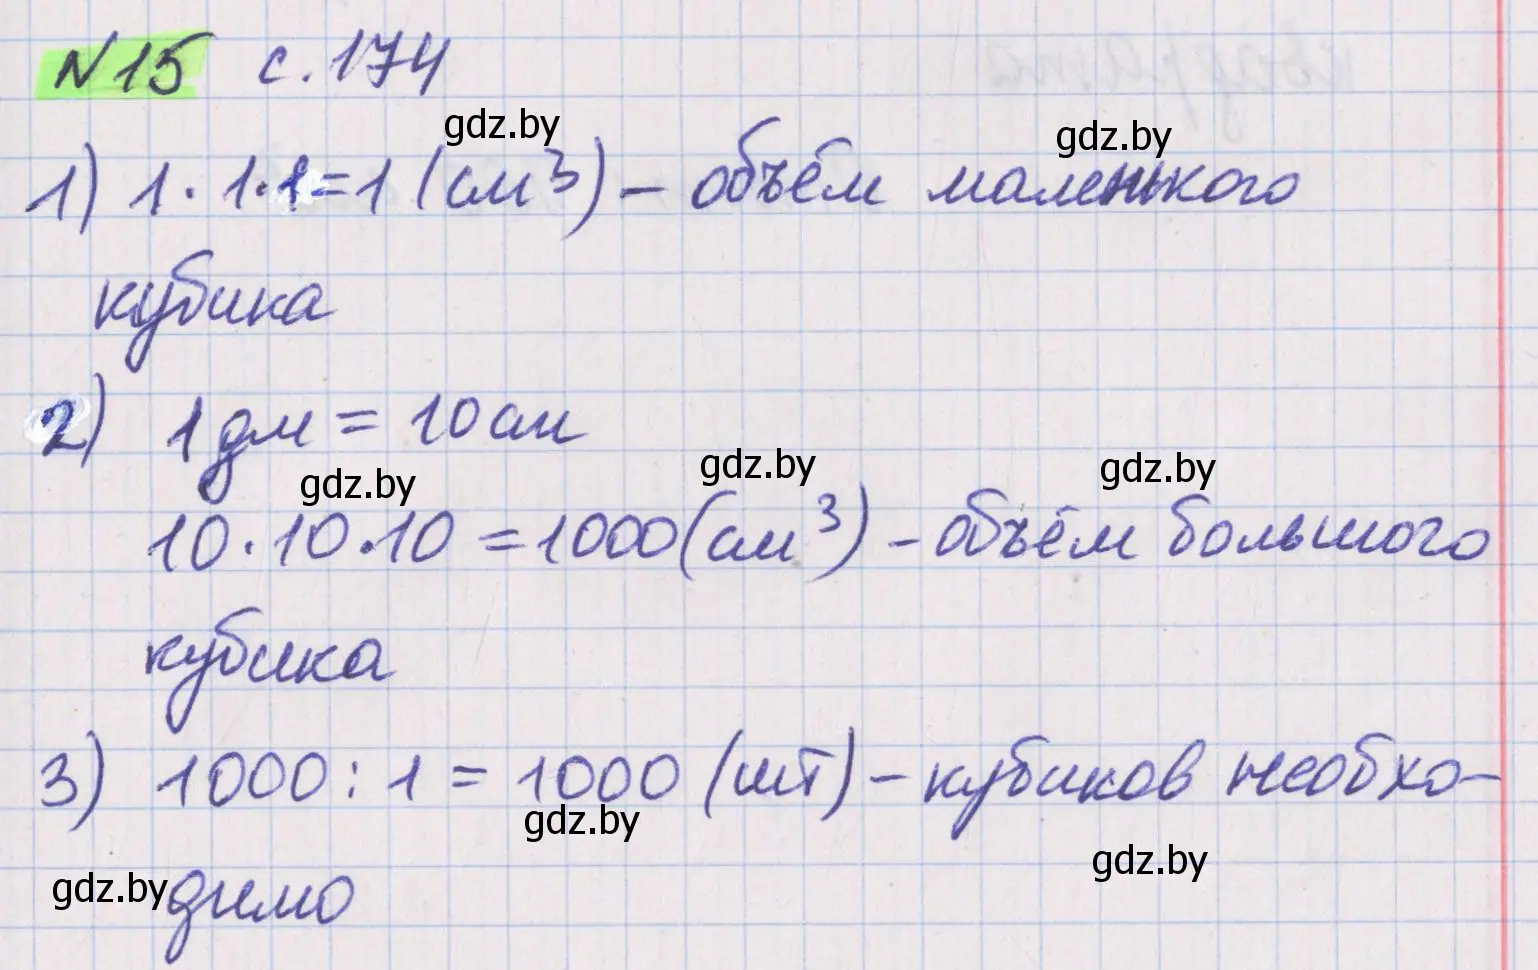 N 15 с. 174
gdz.by gdz.by
1) 1 · 1 · 1 = 1 (см³) – объём маленького
кубика
2) 1 дм = 10 см
gdz.by gdz.by gdz.by
10 · 10 · 10 = 1000 (см³) – объём большого
кубика
3) 1000 : 1 = 1000 (шт) – кубиков необхо-
gdz.by gdz.by
gdz.by димо